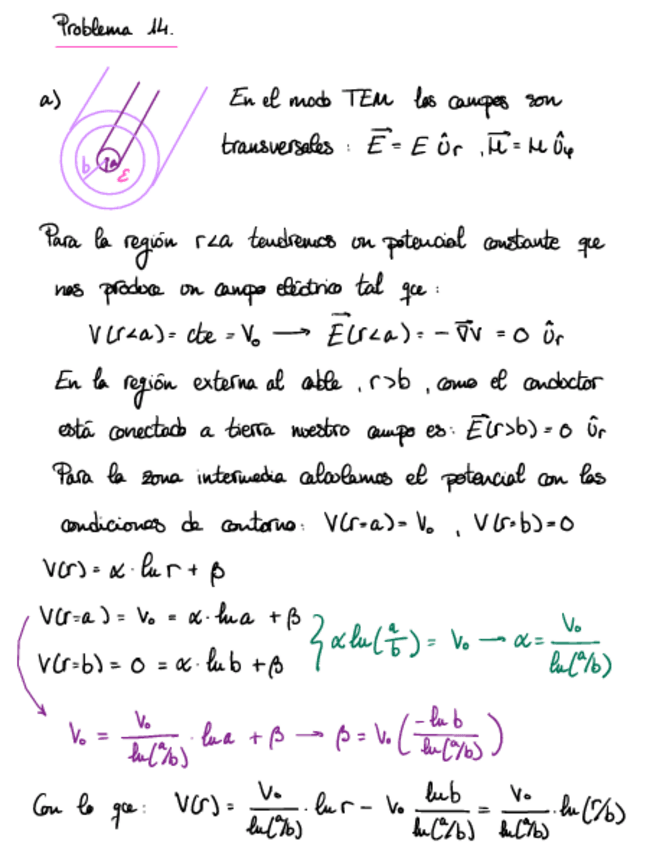 Problema 14.
a)
b a ε
En el modo TEM los campos son
transversales : E⃗ = E ûr , H⃗ = H ûφ
Para la región r<a tendremos un potencial constante que
nos produce un campo eléctrico tal que :
V(r<a) = cte = V₀ → E⃗(r<a) = - ∇⃗V = 0 ûr
En la región externa al cable , r>b , como el conductor
está conectado a tierra nuestro campo es: E⃗(r>b) = 0 ûr
Para la zona intermedia calculamos el potencial con las
condiciones de contorno: V(r=a) = V₀ , V(r=b) = 0
V(r) = α · ln r + β
V(r=a) = V₀ = α · ln a + β
V(r=b) = 0 = α · ln b + β
} α ln(a/b) = V₀ → α = V₀ / ln(a/b)
V₀ = V₀ / ln(a/b) · ln a + β → β = V₀ (-ln b / ln(a/b))
Con lo que: V(r) = V₀ / ln(a/b) · ln r - V₀ ln b / ln(a/b) = V₀ / ln(a/b) · ln(r/b)